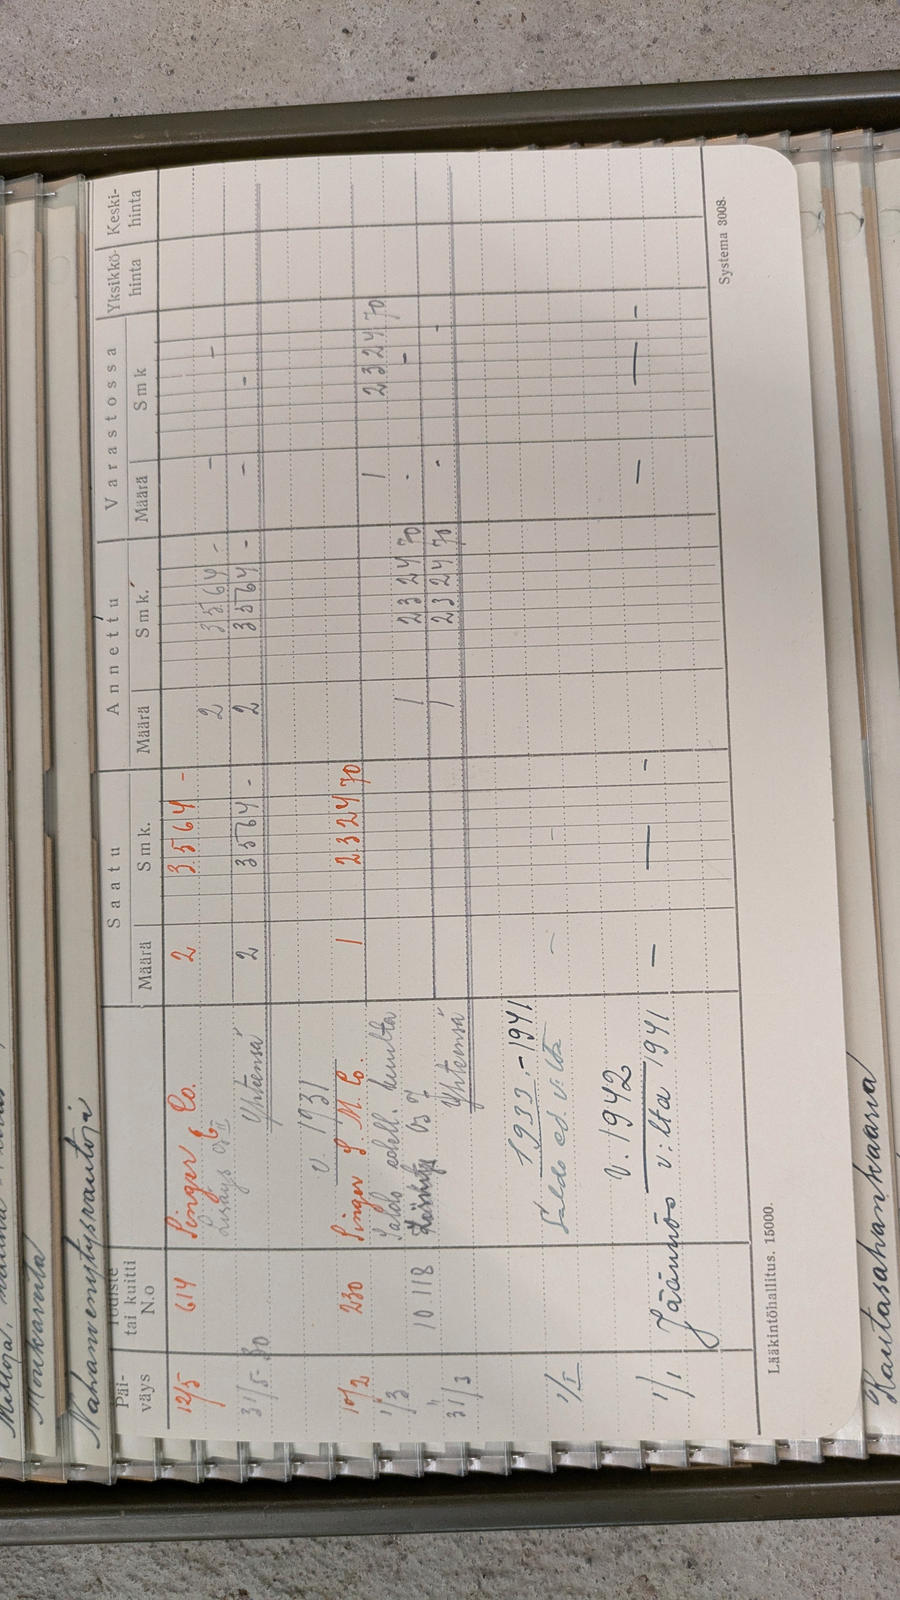 Saatu Annettu Varastossa
Päiväys Todiste tai kuitti N.o Määrä Smk. Määrä Smk. Määrä Smk Yksikköhinta Keskihinta
12/5 614 Singer & Co. 2 3564 -
2 3564 - - -
31/5-30 Yhteensä 2 3564 - 2 3564 - - -
v. 1931
10/2 230 Singer S. M. Co. 1 2324 70 1 2324 70
1/3 Saldo edell. kuulta
10118 1 2324 70 - -
31/3 Yhteensä 1 2324 70 - -
1933 - 1941
1/I Saldo ed. v:lta - -
v. 1942
1/1 Jäännös v:lta 1941 — — - — — -
Lääkintöhallitus. 15000. Systema 3008.
Monkareita
Nahanvenytysrautoja
Kautasahankaaria